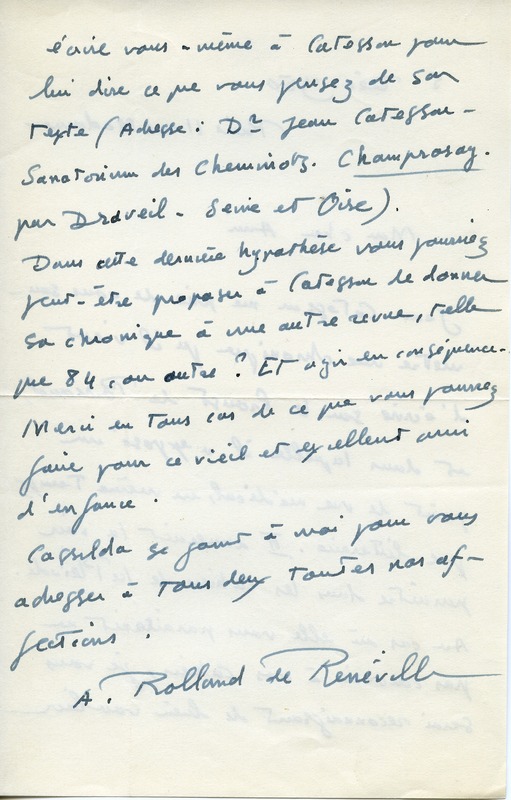 écrire vous-même à Catesson pour
lui dire ce que vous pensez de son
texte (Adresse : Dr Jean Catesson -
Sanatorium des Cheminots. Champrosay.
par Draveil - Seine et Oise).
Dans cette dernière hypothèse vous pourriez
peut-être proposer à Catesson de donner
sa chronique à une autre revue, telle
que 84, ou autre ? Et agir en conséquence.
Merci en tous cas de ce que vous pourrez
faire pour ce vieil et excellent ami
d'enfance.
Cassilda se joint à moi pour vous
adresser à tous deux toutes nos af-
fections.
A. Rolland de Renéville